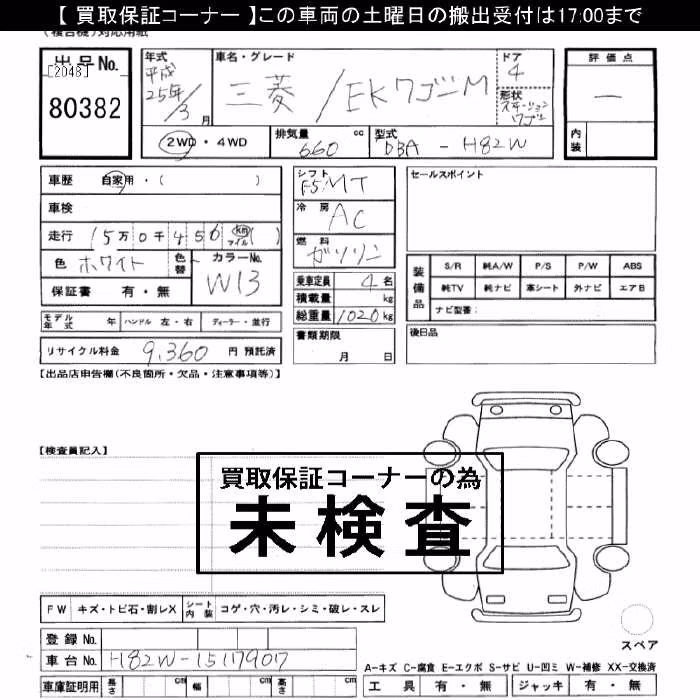 【 買取保証コーナー 】この車両の土曜日の搬出受付は17:00まで
(複合機)対応用紙
出品No.
[2048]
80382
年式
平成
25年/3月
車名・グレード
三菱/EKワゴンM
ドア
4
形状
ステーションワゴン
評価点
ー
内装
2WD・4WD
排気量
660 cc
型式
DBA - H82W
車歴 自家用・( )
車検
走行 15万0千456 km マイル ( )
色 ホワイト
色替
カラーNo.
W13
保証書 有・無
シフト
F5 MT
冷房
AC
燃料
ガソリン
乗車定員 4名
積載量 kg
総重量 1020kg
セールスポイント
装備品
S/R 純A/W P/S P/W ABS
純TV 純ナビ 革シート 外ナビ エアB
ナビ型番:
モデル年式 年 ハンドル 左・右 ディーラー・並行
リサイクル料金 9,360 円 預託済
書類期限
月 日
後日品
【出品店申告欄(不良箇所・欠品・注意事項等)】
【検査員記入】
買取保証コーナーの為
未検査
FW キズ・トビ石・割レX シート内装 コゲ・穴・汚レ・シミ・破レ・スレ
登録No.
車台No. H82W-1517907
車庫証明用 長さ cm 幅 cm 高さ cm
スペア
A-キズ C-腐食 E-エクボ S-サビ U-凹ミ W-補修 XX-交換済
工具 有・無 ジャッキ 有・無